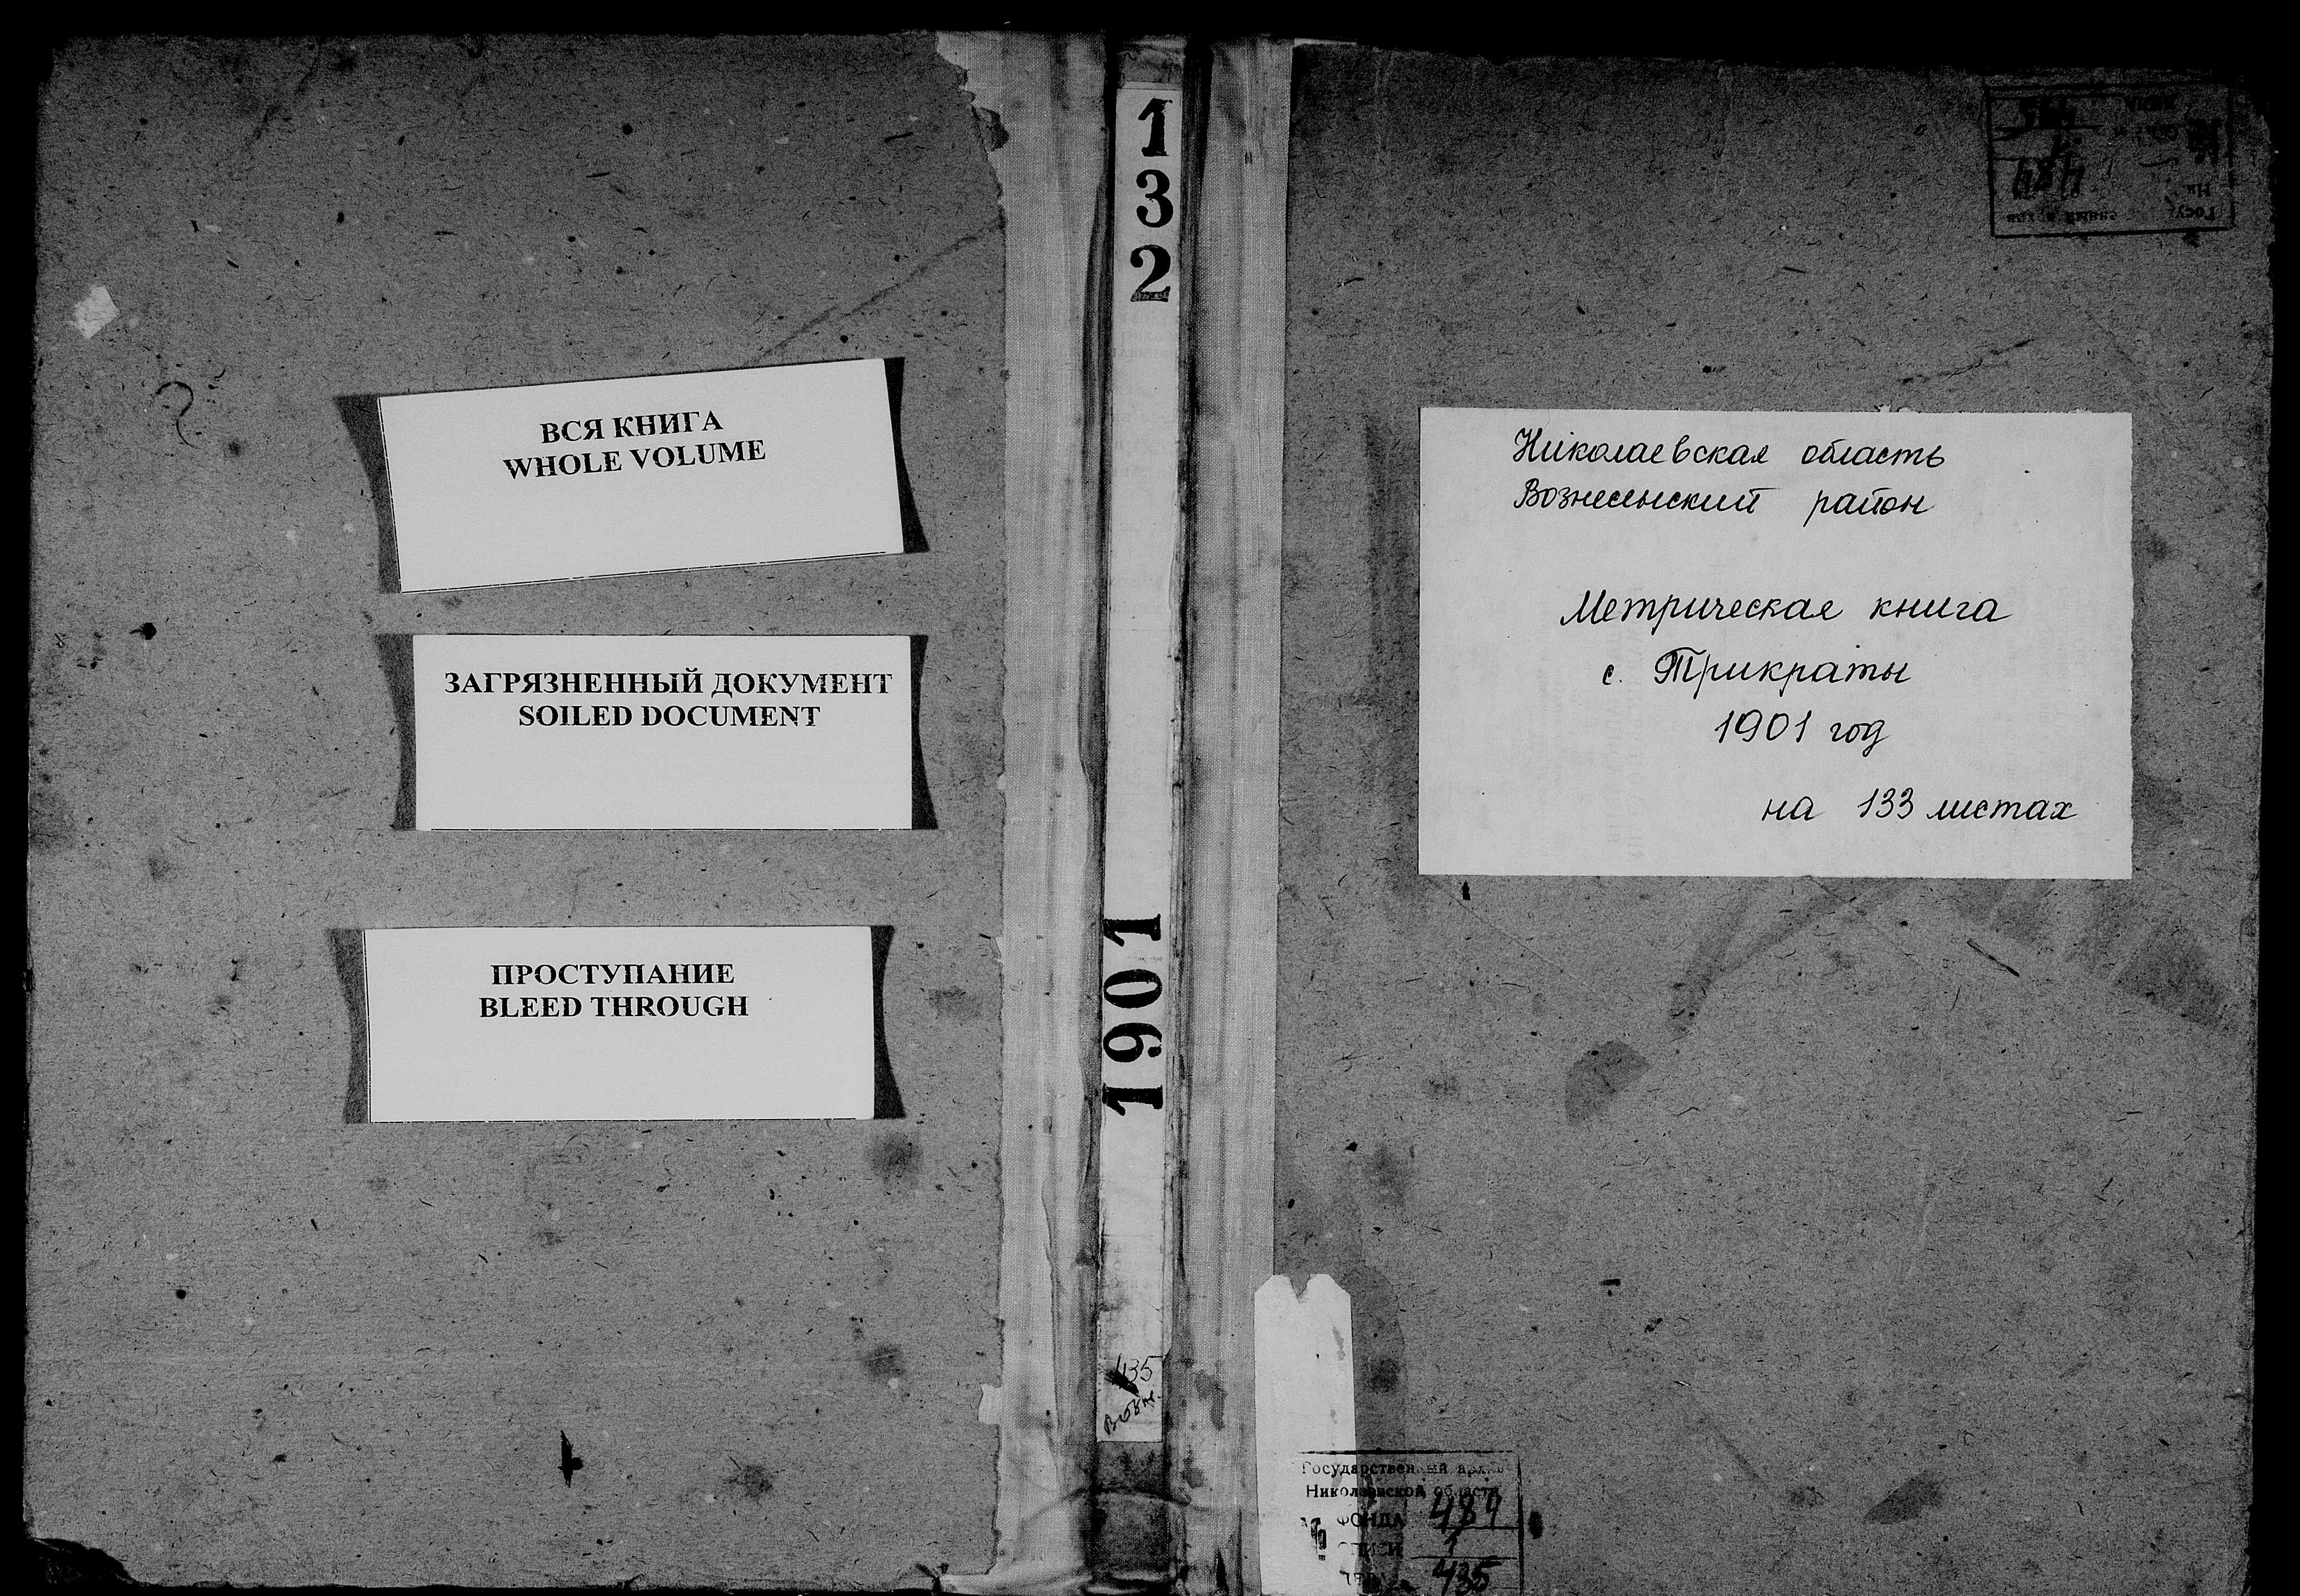 ВСЯ КНИГА
WHOLE VOLUME
ЗАГРЯЗНЕННЫЙ ДОКУМЕНТ
SOILED DOCUMENT
ПРОСТУПАНИЕ
BLEED THROUGH
132
1901
435
Николаевская область
Вознесенский район
Метрическая книга
с. Трикраты
1901 год
на 133 листах
Государственный архив
Николаевской области
ФОНДА 484
ОПИСИ 1
435